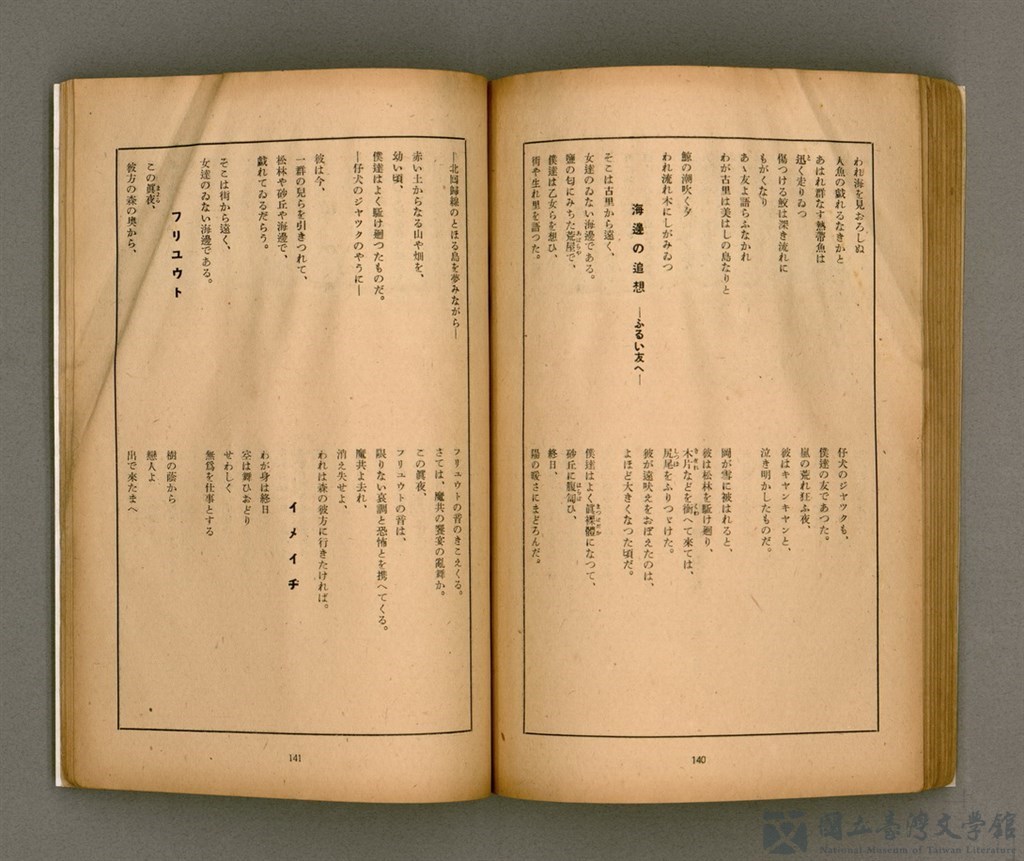 われ海を見おろしぬ
人魚の戯れるなきかと
あはれ群なす熱帶魚は
迅く走りゐつ
傷つける鮫は深き流れに
もがくなり
あゝ友よ語らふなかれ
わが古里は美はしの島なりと
鯨の潮吹く夕
われ流れ木にしがみゐつ
海邊の追想 ―ふるい友へ―
そこは古里から遠く、
女達のゐない海邊である。
鹽の匂にみちた荒屋で、
僕達は乙女らを想ひ、
街や生れ里を語つた。
仔犬のジヤツクも、
僕達の友であつた。
嵐の荒れ狂ふ夜、
彼はキヤンキヤンと、
泣き明かしたものだ。
岡が雪に被はれると、
彼は松林を驅け廻り、
木片などを銜へて來ては、
尻尾をふりつゞけた。
彼が遠吠えをおぼえたのは、
よほど大きくなつた頃だ。
僕達はよく眞裸體になつて、
砂丘に腹匍ひ、
終日、
陽の暖さにまどろんだ。
140
―北囘歸線のとほる島を夢みながら―
赤い土からなる山や畑を、
幼い頃、
僕達はよく驅け廻つたものだ。
―仔犬のジヤツクのやうに―
彼は今、
一群の兒らを引きつれて、
松林や砂丘や海邊で、
戯れてゐるだらう。
そこは街から遠く、
女達のゐない海邊である。
フリユウト
この眞夜、
彼方の森の奥から、
フリユウトの音のきこえくる。
さては、魔共の饗宴の亂舞か。
この眞夜、
フリユウトの音は、
限りない哀調と恐怖とを携へてくる。
魔共よ去れ、
消え失せよ、
われは森の彼方に行きたければ。
イメイヂ
わが身は終日
空は舞ひおどり
せわしく
無爲を仕事とする
樹の蔭から
戀人よ
出で來たまへ
141
國立臺灣文學館
National Museum of Taiwan Literature